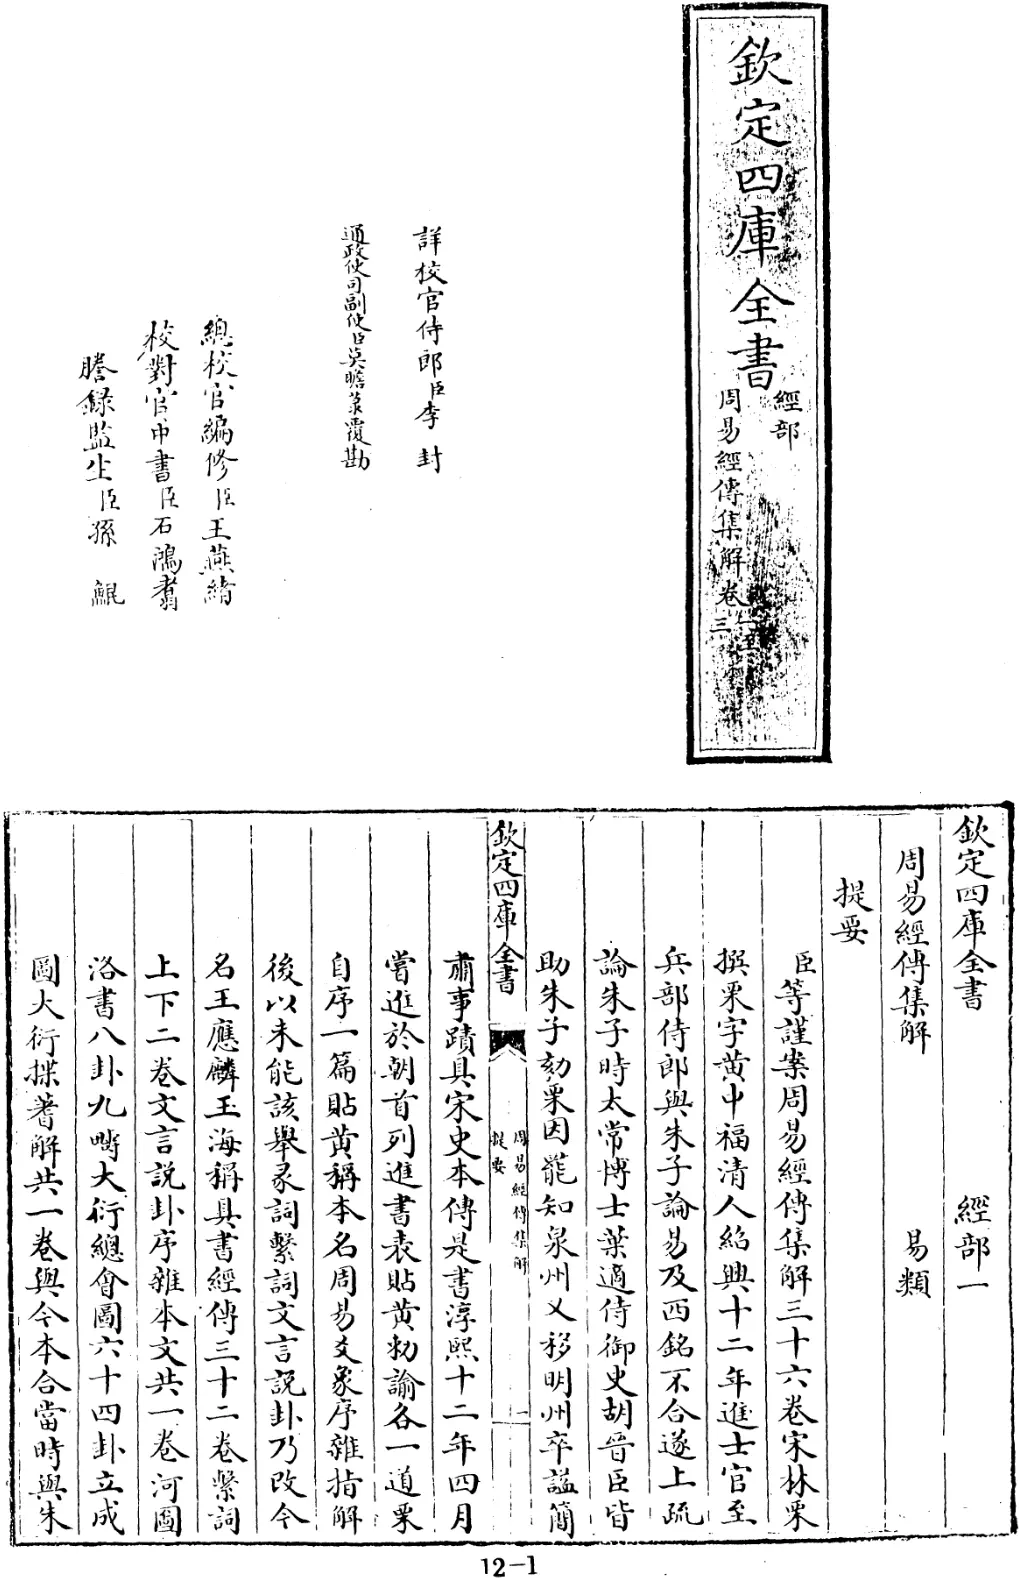 欽定四庫全書
經部
周易經傳集解卷
三
詳校官侍郎臣李封
通政使司副使臣莫瞻菉覆勘
總校官編修臣王燕緒
校對官中書臣石鴻翥
謄錄監生臣孫鯤
欽定四庫全書 經部一
周易經傳集解 易類
提要
臣等謹案周易經傳集解三十六卷宋林栗
撰栗字黄中福清人紹興十二年進士官至
兵部侍郎與朱子論易及西銘不合遂上疏
論朱子時太常博士葉適侍御史胡晉臣皆
助朱子劾栗因罷知泉州又移明州卒諡簡
欽定四庫全書
周易經傳集解
提要
一
肅事蹟具宋史本傳是書淳熙十二年四月
嘗進於朝首列進書表貼黄勅諭各一道栗
自序一篇貼黄稱本名周易爻象序雜指解
後以未能該舉彖詞繫詞文言説卦乃改今
名王應麟玉海稱其書經傳三十二卷繫詞
上下二卷文言説卦序雜本文共一卷河圖
洛書八卦九疇大衍總會圖六十四卦立成
圖大衍揲蓍解共一卷與今本合當時與朱
12-1